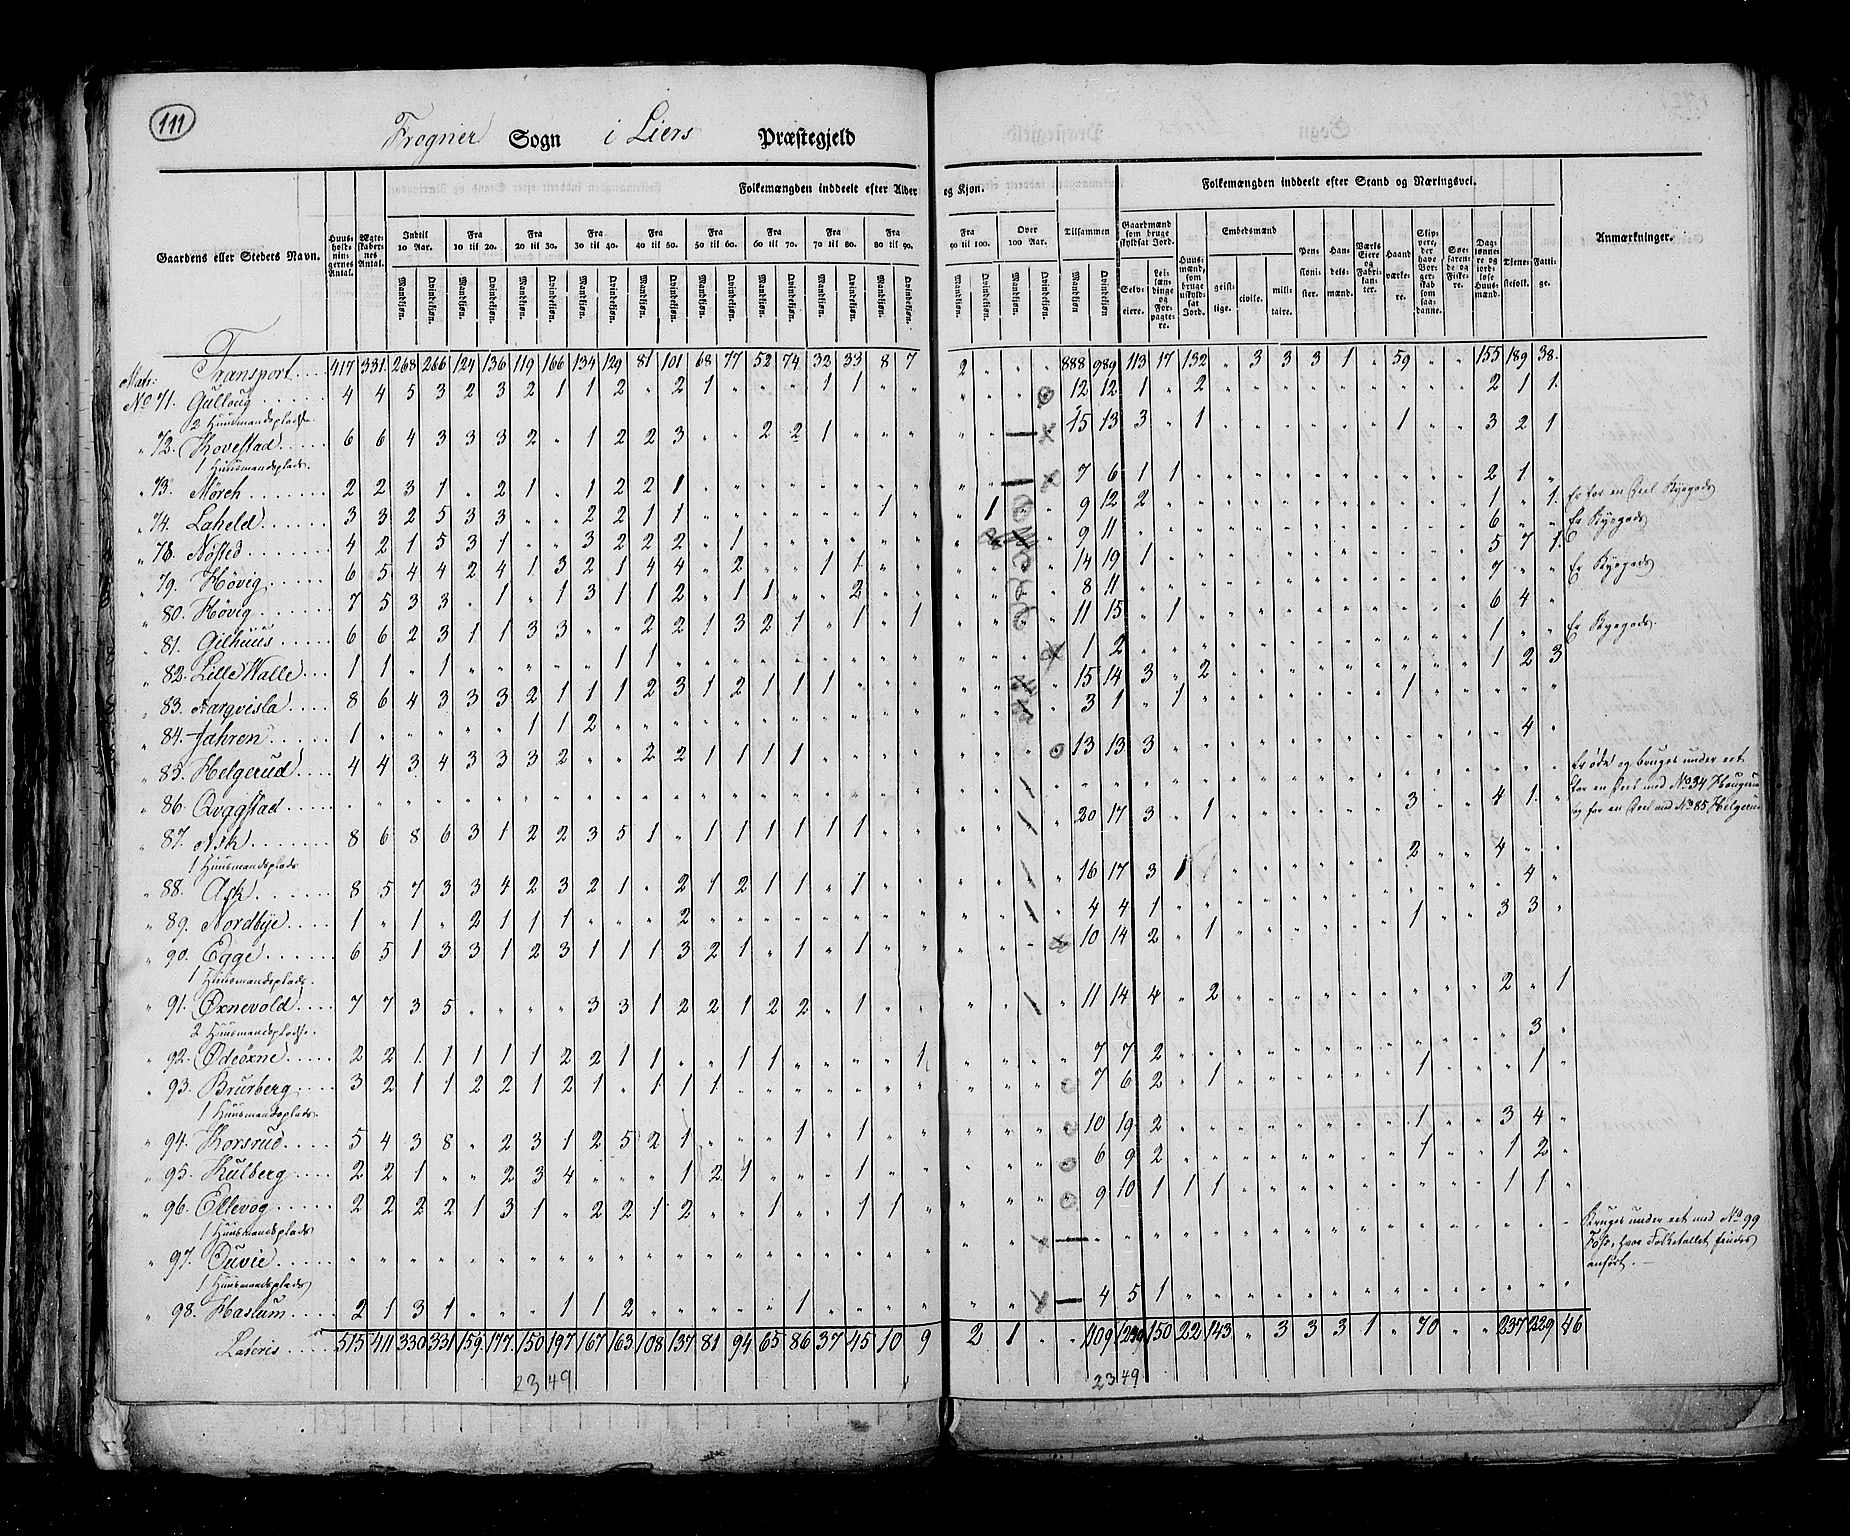 111
Frogner Sogn i Liers Præstegjeld
Gaardens eller Stedets Navn.
Huusholdningernes Antal.
Ægteskabernes Antal.
Folkemængden inddeelt efter Alder og Kjøn.
Indtil 10 Aar. Fra 10 til 20. Fra 20 til 30. Fra 30 til 40. Fra 40 til 50. Fra 50 til 60. Fra 60 til 70. Fra 70 til 80. Fra 80 til 90. Fra 90 til 100. Over 100 Aar. Tilsammen
Mandkjøn. Qvindekjøn.
Folkemængden inddeelt efter Stand og Næringsvei.
Gaardmænd som bruge skyldsat Jord.
Selveiere. Leilændinge og Forpagtere.
Huusmænd, som bruge uskyldsat Jord.
Embedsmænd
geistlige. civile. militaire.
Pensionister. Handelsmænd. Værks Eiere og Fabrikanter. Haandværkere. Søefarende og Fiskere. Tjenestefolk. Fattige.
Anmærkninger.
Transport 417 331 268 266 124 136 119 166 134 129 81 101 68 77 52 74 32 33 8 7 2 " " " 888 989 113 17 132 " 3 3 3 1 " 59 " " 155 189 38.
Matr:
No 71. Gulloug 4 4 5 3 2 3 2 1 1 2 " 2 1 " " " 1 1 " " 12 12 1 " 2 2 1 1
2 Huusmandspladse.
" 72. Hovestad 6 6 4 3 3 3 2 " 1 2 2 3 " " 2 2 1 " " " 15 13 3 " 1 1 3 2 1
1 Huusmandsplads.
" 73. Mörch 2 2 3 1 " 2 1 " 1 2 2 1 7 6 1 1 2 1 "
" 74. Laheld 3 3 2 5 3 3 " " 2 2 1 1 " " " " " " 1 " " 1 9 12 2 1 " 1. Er for en Deel Kyegods
" 78. Nøsted 4 2 1 5 3 1 " " 3 2 2 2 " 1 9 11 6 " " Er Kyegods
" 79. Hövig 6 5 4 4 2 4 1 3 2 1 4 4 " 2 " " 1 1 " " 14 19 1 5 7 1.
" 80. Hövig 7 5 3 3 " 1 " 1 3 1 1 2 " 1 1 " " 2 " " 8 11 7 " " Er Kyegods
" 81. Gilhuus 6 6 2 3 1 1 3 3 " " 2 2 1 3 2 1 " 1 " 1 11 15 " 1 6 4 "
" 82. Lille Walle 1 1 " 1 " " " " " 1 1 1 2 1 " " Er Kyegods.
" 83. Nargvisla 8 6 4 3 3 3 2 1 1 1 2 3 1 2 1 1 1 15 14 3 " 2 1 1 2 3
" 84. Jahren 1 " " " " " 1 1 2 3 1 " 1
" 85. Helgerud 4 4 3 4 3 3 3 2 " " 2 2 1 1 1 1 13 13 3 4 "
" 86. Qvggstad Er øde og bruges under eet
for en Deel med No 34 Haugerud
og for en Deel med No 85 Helgerud
" 87. Ask 8 6 8 6 3 1 2 2 3 5 1 " 1 1 1 1 1 1 20 17 3 " 1 3 4 1. "
1 Huusmandsplads
" 88. Ask 8 5 7 3 3 4 2 3 2 1 " 2 1 2 1 1 " 1 16 17 3 1 2 4 " "
" 89. Nordbye 1 " 1 " 2 1 1 1 " " " 2 4 4 1 " 4 "
" 90. Egge 6 5 1 3 3 1 2 3 1 1 1 3 2 1 " 1 " 1 10 14 2 " 1 1 3 3 "
1 Huusmandsplads.
" 91. Øxnevold 7 7 3 5 " " " " 3 3 1 2 2 1 2 2 " 1 11 14 4 " 2 2 " 1
2 Huusmandspladse.
" 92. Ødeöxne 2 2 1 1 1 1 1 2 2 1 1 " " 1 1 " " " " 1 7 7 2 " 3 "
" 93. Brurberg 3 2 1 1 2 2 1 2 1 " 1 1 1 7 6 2 " 1 1 " 1 "
1 Huusmandsplads.
" 94. Korsrud 5 4 3 8 " 2 3 1 2 5 2 1 " " " 1 " 1 10 19 2 1 3 4 "
" 95. Kulberg 2 2 1 " " 2 3 4 " " " 1 2 1 " " " 1 6 9 2 1 1 2 "
" 96. Ellevog 2 2 2 2 1 3 1 " 2 2 1 2 " " 1 " " 1 1 9 10 1 1 1 1 1 "
1 Huusmandsplads
" 97. Tuvie Bruges under eet med No 99
Fosş, hvor Folketallet findes
anført.
1 Huusmandsplads
" 98. Haslum 2 1 3 1 " " " 1 1 2 " " " " " 1 4 5 1
Lateris 515 411 330 331 159 177 150 197 167 163 108 137 81 94 65 86 37 45 10 9 2 1 " " 1109 1240 150 22 143 " 3 3 3 1 " 70 " " 237 229 46
2349
2349